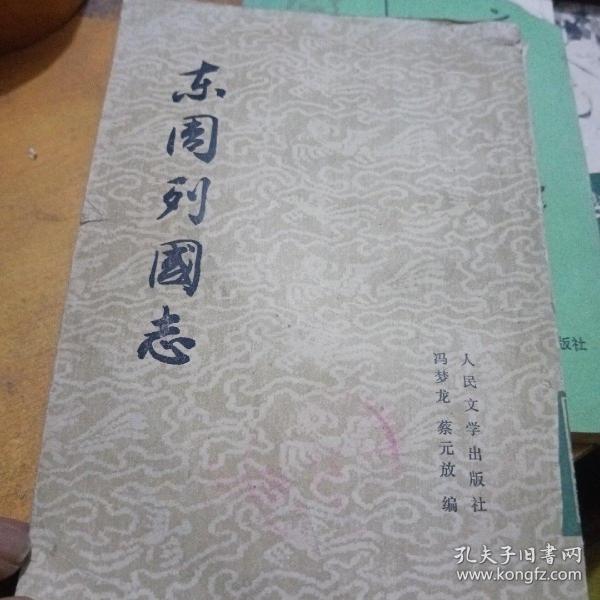 东周列國志
人民文学出版社
冯梦龙 蔡元放 编
版社
孔夫子旧书网
www.kongfz.com